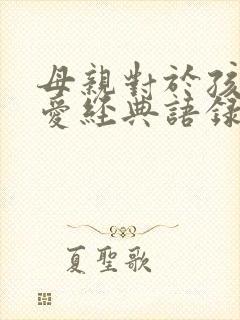 母親對於孩
愛經典語錄
夏聖歌